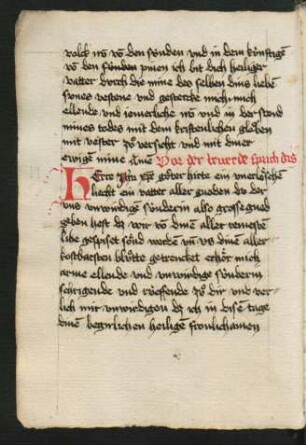 volck mō vō den sünden vnd in dem künftigē
vō den sünden pinen ich bit dich heiliger
vatter durch die mine des selben dins liebē
sunes vestene vnd gestercke mich mich
ellende vnd iemerliche nō vnd in der stund
mines todes mit dem kristenlichen glōben
mit vester zů versicht vnd mit diner
ewigē mine Amē Vor der truerde sprich dis
Herre ihū xpē gůter hirte ein vnerlöschē
liecht ein vatter aller gnoden du der
vns vnwirdige sünderin also grosse gnad
geben hest dz wir vō dinē aller reinestē
libe gespiset sōd werden vn̄ vs dinē aller
kostbaresten blůtte getrencket erhör mich
arme ellende vnd vnwirdige sünderin
schrigende vnd růeffende zů dir vnd ver
lich mir vnwirdigen dz ich in disē tage
dinē begirlichen heiligē fronlichamen